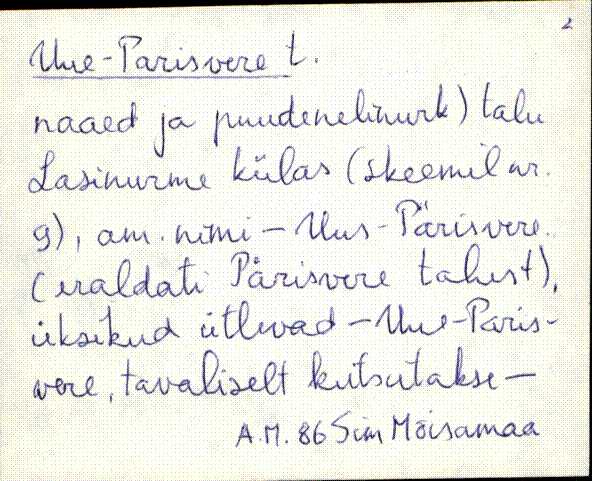 2
Uue-Parisvere t.
naaed ja puudenelinurk) talu
Lasinurme külas (skeemil nr.
9), am. nimi - Uus-Pärisvere.
(eraldati Pärisvere talust),
üksikud ütlevad - Uue-Paris-
vere, tavaliselt kutsutakse -
A.M. 86 Sim Mõisamaa